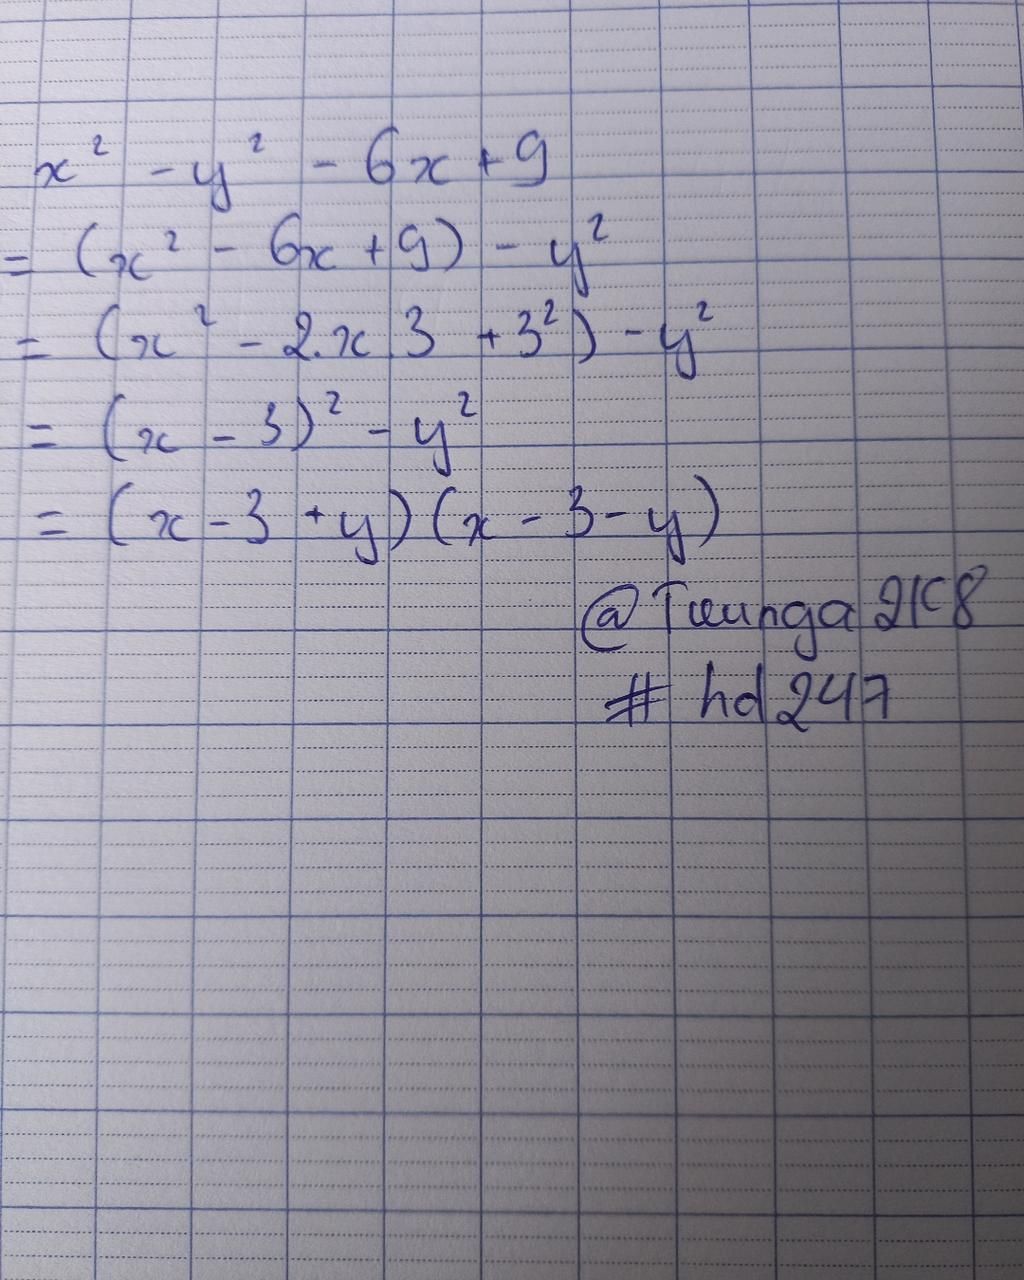 x² - y² - 6x + 9
= (x² - 6x + 9) - y²
= (x² - 2.x.3 + 3²) - y²
= (x - 3)² - y²
= (x - 3 + y)(x - 3 - y)
2K8
# hd247